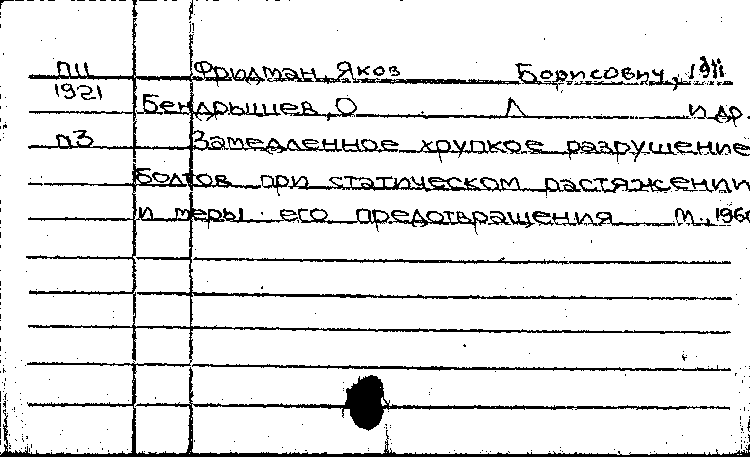 П11 Фридман, Яков Борисович, 1911
1921 Бендрышев, О Л и др.
п3 Замедленное хрупкое разрушение
болтов при статическом растяжении
и меры его предотвращения М., 1960